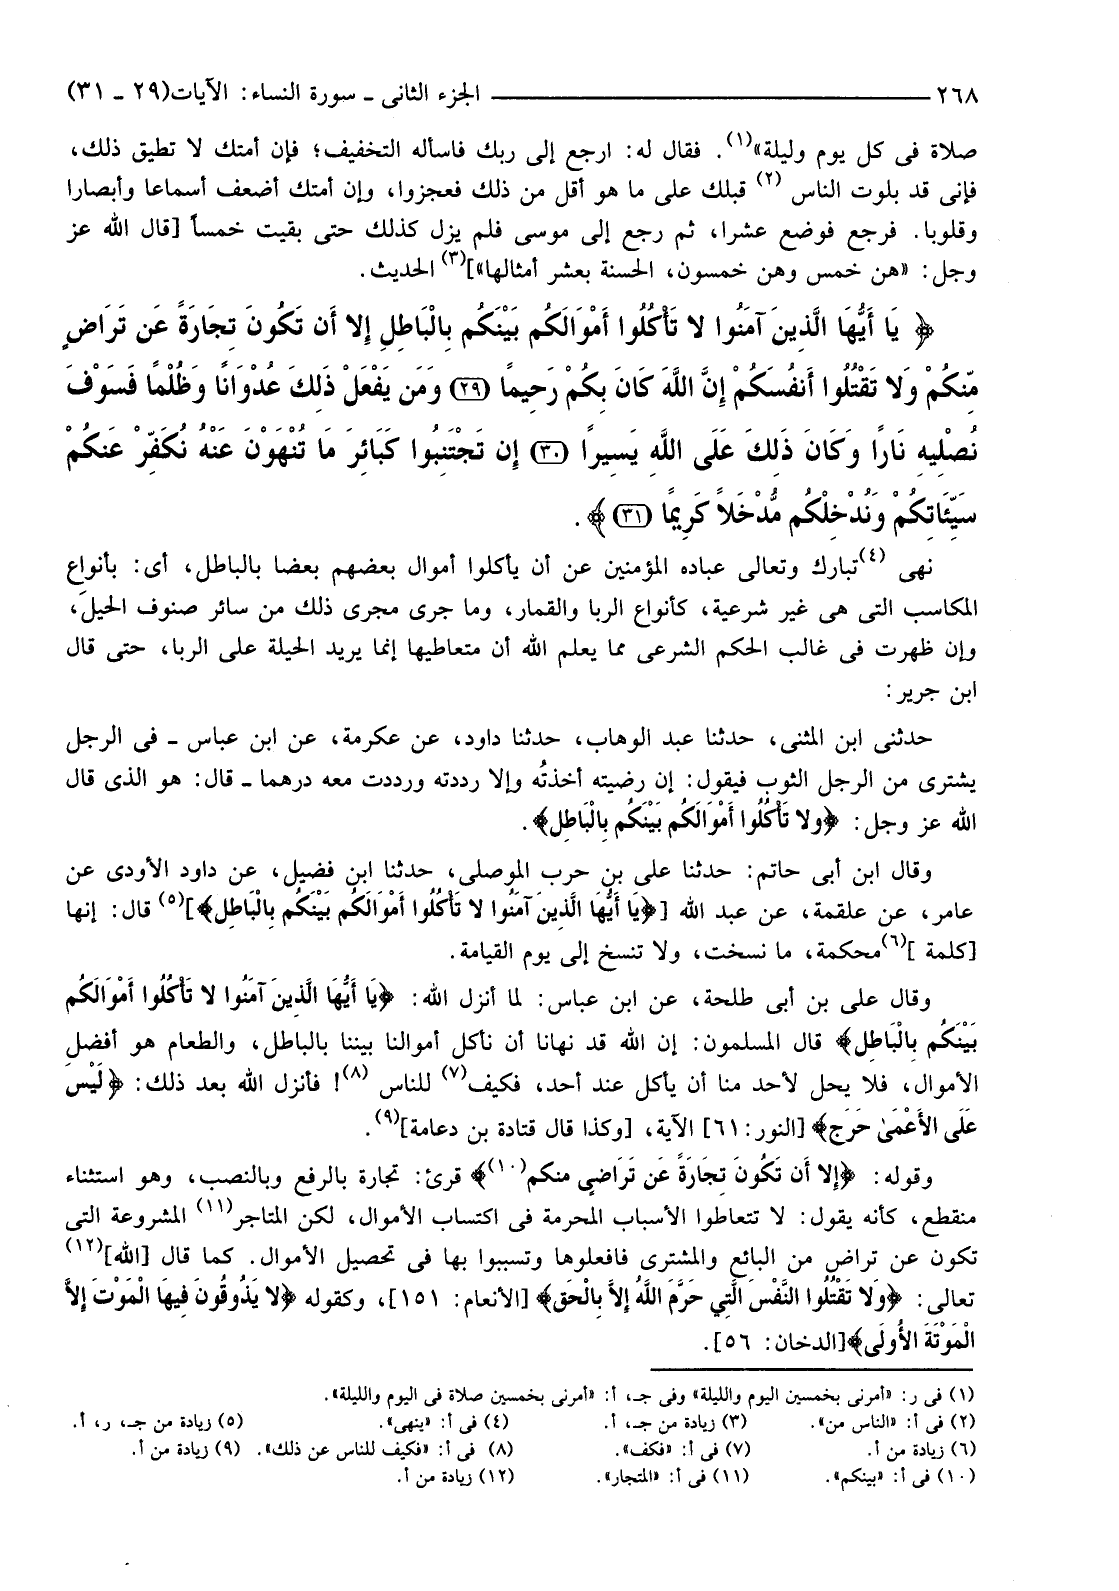 ٢٦٨ ــــــــــــــــ الجزء الثانى ـ سورة النساء: الآيات(٢٩ ـ ٣١)
صلاة فى كل يوم وليلة»(١). فقال له: ارجع إلى ربك فاسأله التخفيف؛ فإن أمتك لا تطيق ذلك،
فإنى قد بلوت الناس (٢) قبلك على ما هو أقل من ذلك فعجزوا، وإن أمتك أضعف أسماعا وأبصارا
وقلوبا. فرجع فوضع عشرا، ثم رجع إلى موسى فلم يزل كذلك حتى بقيت خمساً [قال الله عز
وجل: «هن خمس وهن خمسون، الحسنة بعشر أمثالها»](٣) الحديث.
﴿ يَا أَيُّهَا الَّذِينَ آمَنُوا لا تَأْكُلُوا أَمْوَالَكُم بَيْنَكُم بِالْبَاطِلِ إِلا أَن تَكُونَ تِجَارَةً عَن تَرَاضٍ
مِّنكُمْ وَلا تَقْتُلُوا أَنفُسَكُمْ إِنَّ اللَّهَ كَانَ بِكُمْ رَحِيمًا (٢٩) وَمَن يَفْعَلْ ذَلِكَ عُدْوَانًا وَظُلْمًا فَسَوْفَ
نُصْلِيهِ نَارًا وَكَانَ ذَلِكَ عَلَى اللَّهِ يَسِيرًا (٣٠) إِن تَجْتَنِبُوا كَبَائِرَ مَا تُنْهَوْنَ عَنْهُ نُكَفِّرْ عَنكُمْ
سَيِّئَاتِكُمْ وَنُدْخِلْكُم مُّدْخَلاً كَرِيمًا (٣١) ﴾.
نهى (٤)تبارك وتعالى عباده المؤمنين عن أن يأكلوا أموال بعضهم بعضا بالباطل، أى: بأنواع
المكاسب التى هى غير شرعية، كأنواع الربا والقمار، وما جرى مجرى ذلك من سائر صنوف الحيلَ،
وإن ظهرت فى غالب الحكم الشرعى مما يعلم الله أن متعاطيها إنما يريد الحيلة على الربا، حتى قال
ابن جرير:
حدثنى ابن المثنى، حدثنا عبد الوهاب، حدثنا داود، عن عكرمة، عن ابن عباس ـ فى الرجل
يشترى من الرجل الثوب فيقول: إن رضيته أخذتُه وإلا رددته ورددت معه درهما ـ قال: هو الذى قال
الله عز وجل: ﴿ولا تَأْكُلُوا أَمْوَالَكُم بَيْنَكُم بِالْبَاطِلِ﴾.
وقال ابن أبى حاتم: حدثنا على بن حرب الموصلى، حدثنا ابن فضيل، عن داود الأودى عن
عامر، عن علقمة، عن عبد الله [﴿يَا أَيُّهَا الَّذِينَ آمَنُوا لا تَأْكُلُوا أَمْوَالَكُم بَيْنَكُم بِالْبَاطِلِ﴾](٥) قال: إنها
[كلمة ](٦)محكمة، ما نسخت، ولا تنسخ إلى يوم القيامة.
وقال على بن أبى طلحة، عن ابن عباس: لما أنزل الله: ﴿يَا أَيُّهَا الَّذِينَ آمَنُوا لا تَأْكُلُوا أَمْوَالَكُم
بَيْنَكُم بِالْبَاطِلِ﴾ قال المسلمون: إن الله قد نهانا أن نأكل أموالنا بيننا بالباطل، والطعام هو أفضل
الأموال، فلا يحل لأحد منا أن يأكل عند أحد، فكيف(٧) للناس (٨)! فأنزل الله بعد ذلك: ﴿لَيْسَ
عَلَى الأَعْمَىٰ حَرَج﴾ [النور: ٦١] الآية، [وكذا قال قتادة بن دعامة](٩).
وقوله: ﴿إِلا أَن تَكُونَ تِجَارَةً عَن تَرَاضٍ منكم(١٠)﴾ قرئ: تجارة بالرفع وبالنصب، وهو استثناء
منقطع، كأنه يقول: لا تتعاطوا الأسباب المحرمة فى اكتساب الأموال، لكن المتاجر(١١) المشروعة التى
تكون عن تراض من البائع والمشترى فافعلوها وتسببوا بها فى تحصيل الأموال. كما قال [الله](١٢)
تعالى: ﴿وَلَا تَقْتُلُوا النَّفْسَ الَّتِي حَرَّمَ اللَّهُ إِلاَّ بِالْحَق﴾ [الأنعام: ١٥١]، وكقوله ﴿لا يَذُوقُونَ فِيهَا الْمَوْتَ إِلاَّ
الْمَوْتَةَ الأُولَى﴾[الدخان: ٥٦].
(١) فى ر: «أمرنى بخمسين اليوم والليلة» وفى جـ، أ: «أمرنى بخمسين صلاة فى اليوم والليلة».
(٢) فى أ: «الناس من». (٣) زيادة من جـ، أ. (٤) فى أ: «ينهى». (٥) زيادة من جـ، ر، أ.
(٦) زيادة من أ. (٧) فى أ: «فكف». (٨) فى أ: «فكيف للناس عن ذلك». (٩) زيادة من أ.
(١٠) فى أ: «بينكم». (١١) فى أ: «المتجار». (١٢) زيادة من أ.